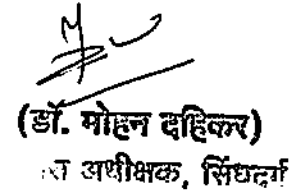 (डॉ. मोहन दहिकर)
अधीक्षक, सिंधदुर्ग